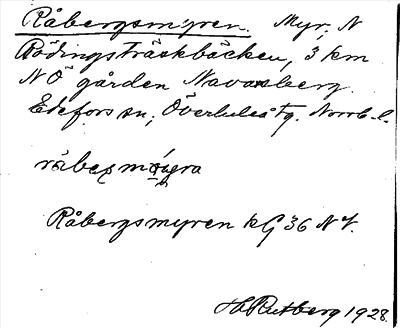 Råbergsmyren. Myr, N
Rödingsträskbäcken, 3 km
NÖ gården Navasberg.
Edefors sn, Överluleå tg. Norrb. l.
Råbergsmyren kG 36 NV.
H. Rutberg 1928.